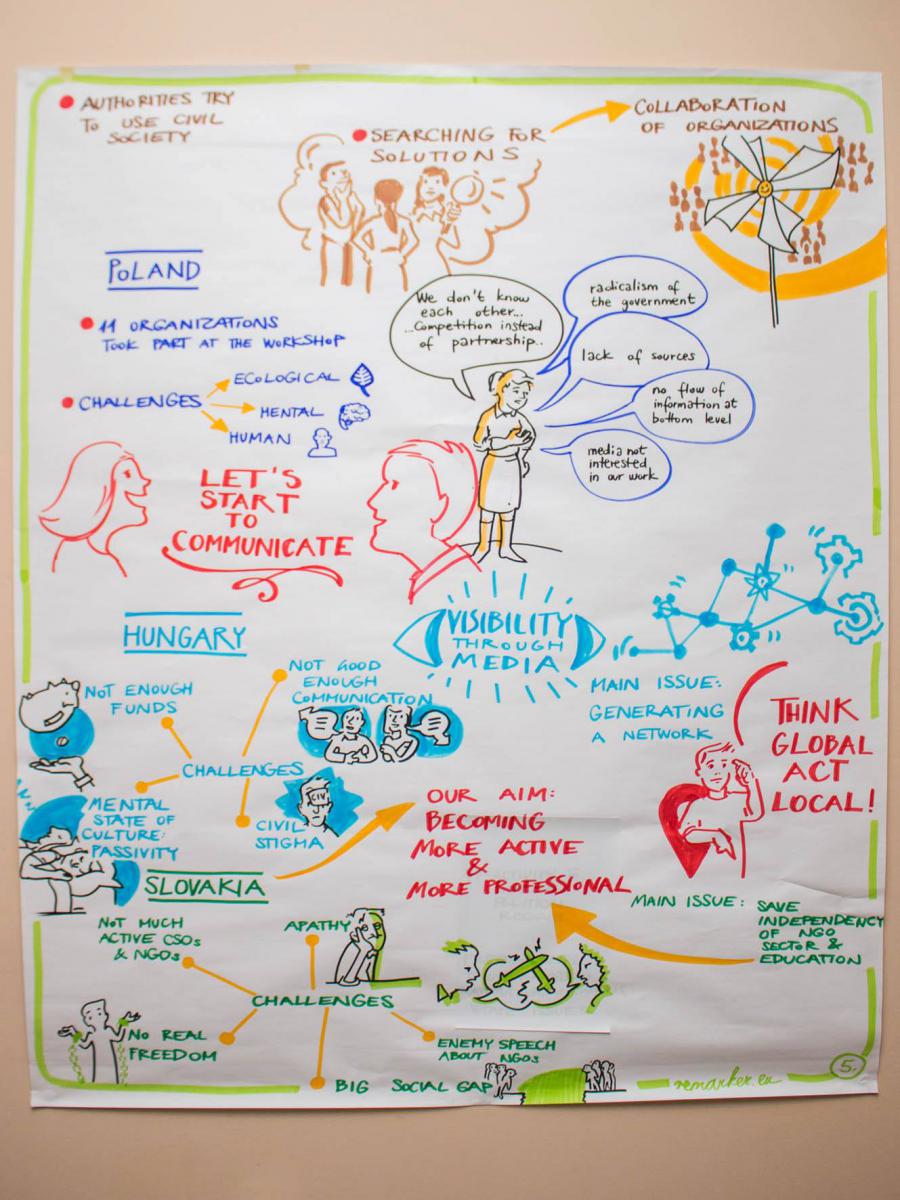 AUTHORITIES TRY
TO USE CIVIL
SOCIETY
SEARCHING FOR
SOLUTIONS
COLLABORATION
OF ORGANIZATIONS
POLAND
11 ORGANIZATIONS
TOOK PART AT THE WORKSHOP
CHALLENGES
ECOLOGICAL
MENTAL
HUMAN
We don't know
each other...
...Competition instead
of partnership..
radicalism of
the government
lack of sources
no flow of
information at
bottom level
media not
interested
in our work
LET'S
START
TO
COMMUNICATE
HUNGARY
VISIBILITY
THROUGH
MEDIA
NOT ENOUGH
FUNDS
NOT GOOD
ENOUGH
COMMUNICATION
CHALLENGES
MENTAL
STATE OF
CULTURE:
PASSIVITY
CIVIL
STIGMA
CIV
MAIN ISSUE:
GENERATING
A NETWORK
THINK
GLOBAL
ACT
LOCAL!
OUR AIM:
BECOMING
MORE ACTIVE
&
MORE PROFESSIONAL
SLOVAKIA
MAIN ISSUE:
SAVE
INDEPENDENCY
OF NGO
SECTOR &
EDUCATION
NOT MUCH
ACTIVE CSOs
& NGOs
APATHY
CHALLENGES
NO REAL
FREEDOM
ENEMY SPEECH
ABOUT NGOs
BIG SOCIAL GAP
remarker.eu
5.